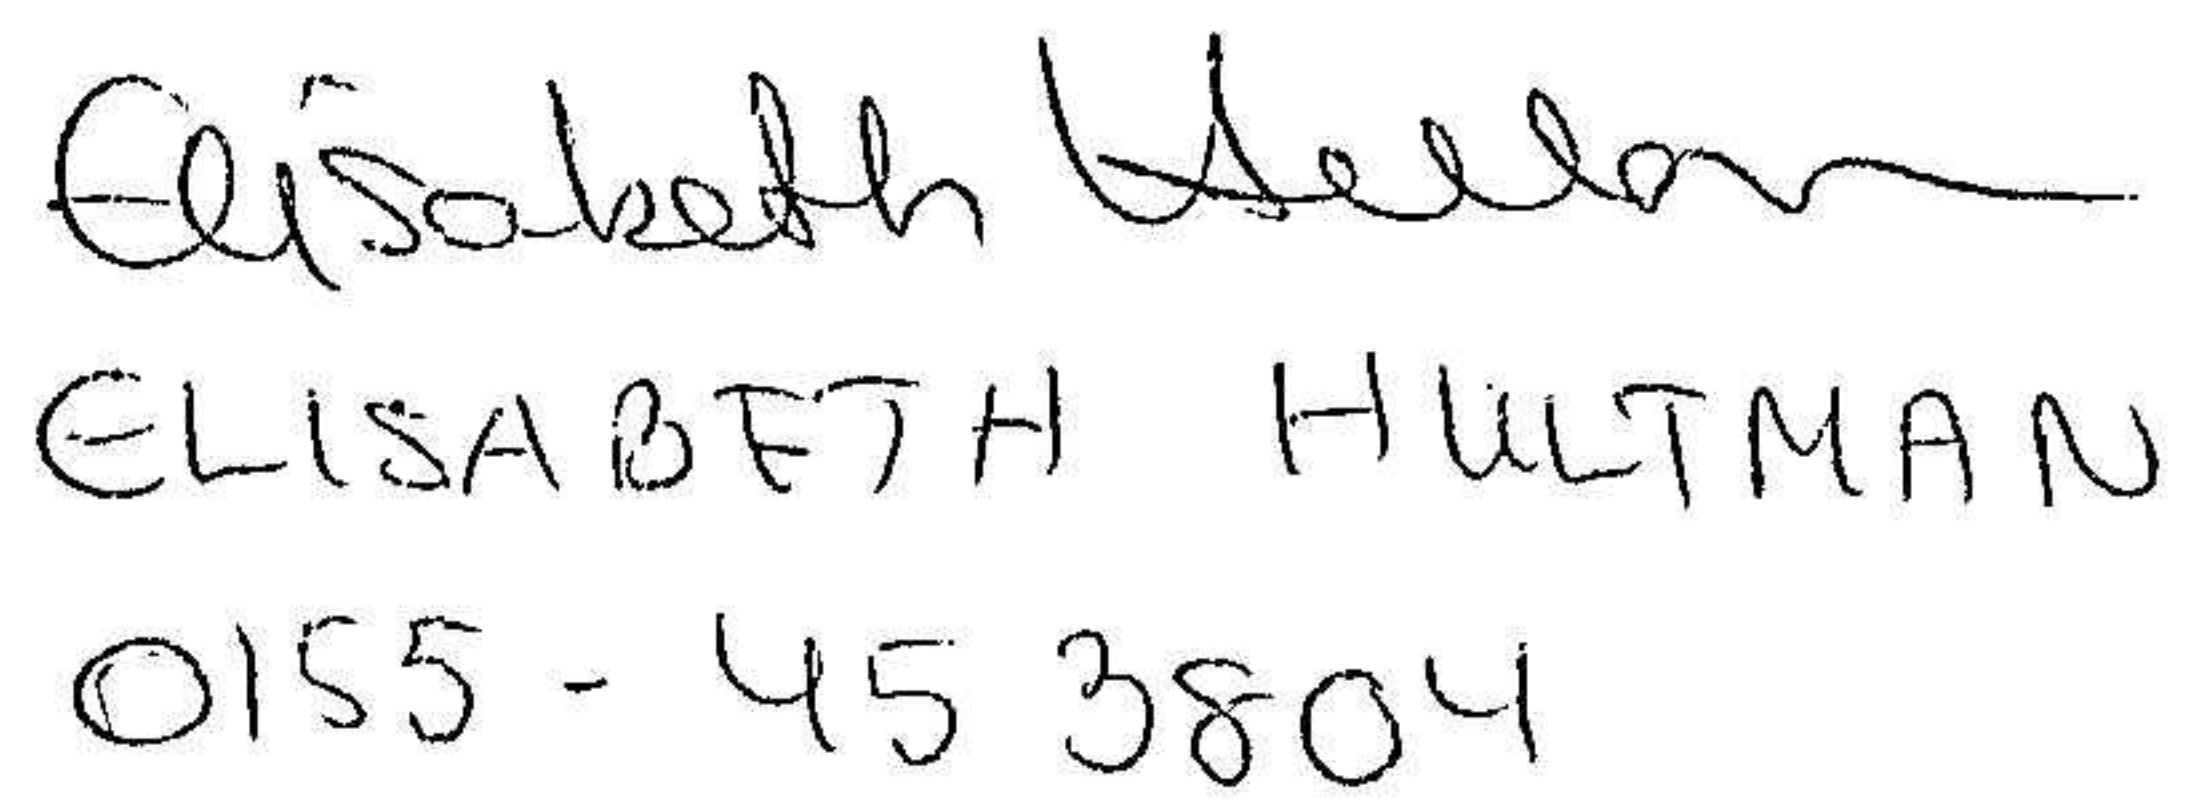 Elisabeth Hultman
ELISABETH HULTMAN
0155 - 45 3804